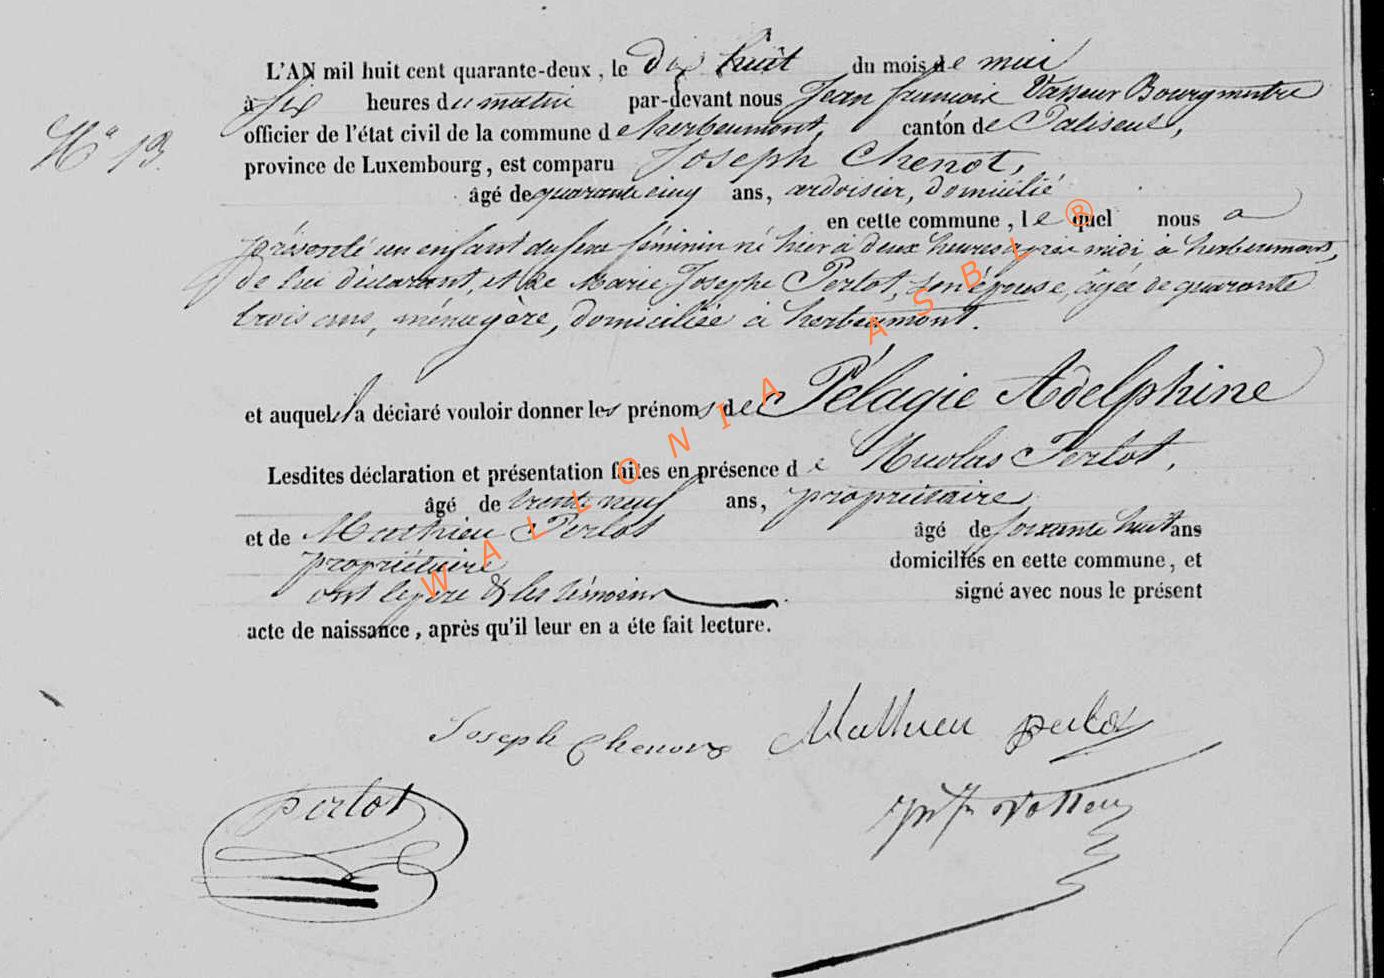 L'AN mil huit cent quarante-deux, le dix huit du mois de mai
à six heures du matin par-devant nous Jean francois Vasseur Bourgmestre
N° 13.
officier de l'état civil de la commune de herbeumont, canton de Paliseul,
province de Luxembourg, est comparu Joseph Chenot,
âgé de quarante cinq ans, ardoisier, domicilié
en cette commune, lequel nous a
présenté un enfant du sexe féminin né hier à deux heures après midi à herbeumont,
de lui déclarant, et de Marie Josephe Perlot, son épouse, âgée de quarante
trois ans, ménagère, domiciliée à herbeumont.
et auquel il a déclaré vouloir donner les prénoms de Pélagie Adelphine
Lesdites déclaration et présentation faites en présence de Nicolas Perlot,
âgé de trente neuf ans, propriétaire
et de Mathieu Perlot âgé de soixante huit ans
propriétaire domiciliés en cette commune, et
ont le père & les témoins signé avec nous le présent
acte de naissance, après qu'il leur en a éte fait lecture.
Joseph Chenot Mathieu perlot
perlot
WALLONIA ASBL ®